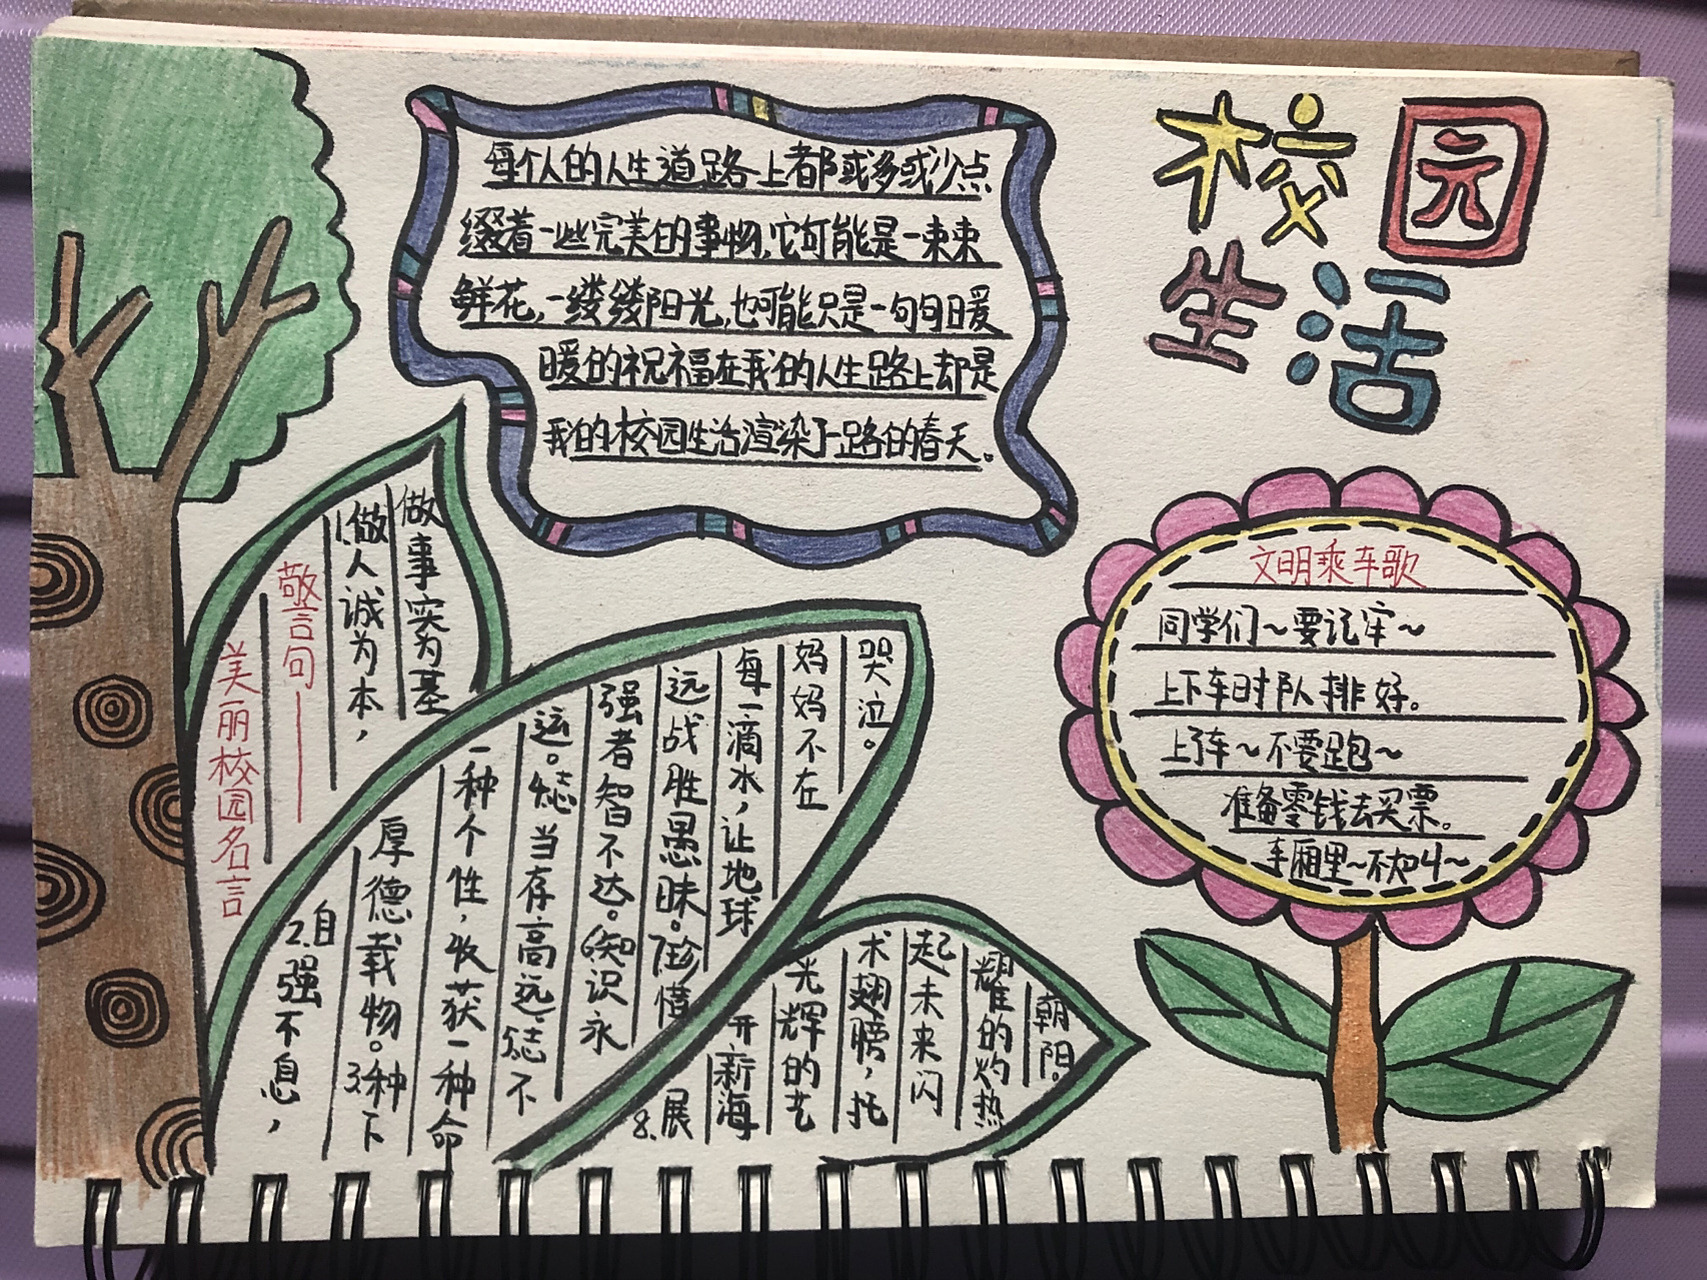 校园
生活
每个人的人生道路上都或多或少点
缀着一些完美的事物,它可能是一束束
鲜花,一缕缕阳光,也可能只是一句句暖
暖的祝福在我的人生路上却是
我的校园生活渲染了一路的春天。
美丽校园名言
警言句——
1.做人诚为本,
做事实为基
2.自强不息,
厚德载物。3.种下
一种个性,收获一种命
运。4志当存高远;5志不
强者智不达。6知识永
远战胜愚昧。7珍惜
每一滴水,让地球
妈妈不在
哭泣。
8.展
开新海
光辉的艺
术翅膀,托
起未来闪
耀的灼热
朝阳。
文明乘车歌
同学们～要记牢～
上下车时队排好。
上了车～不要跑～
准备零钱去买票。
车厢里～不大叫～